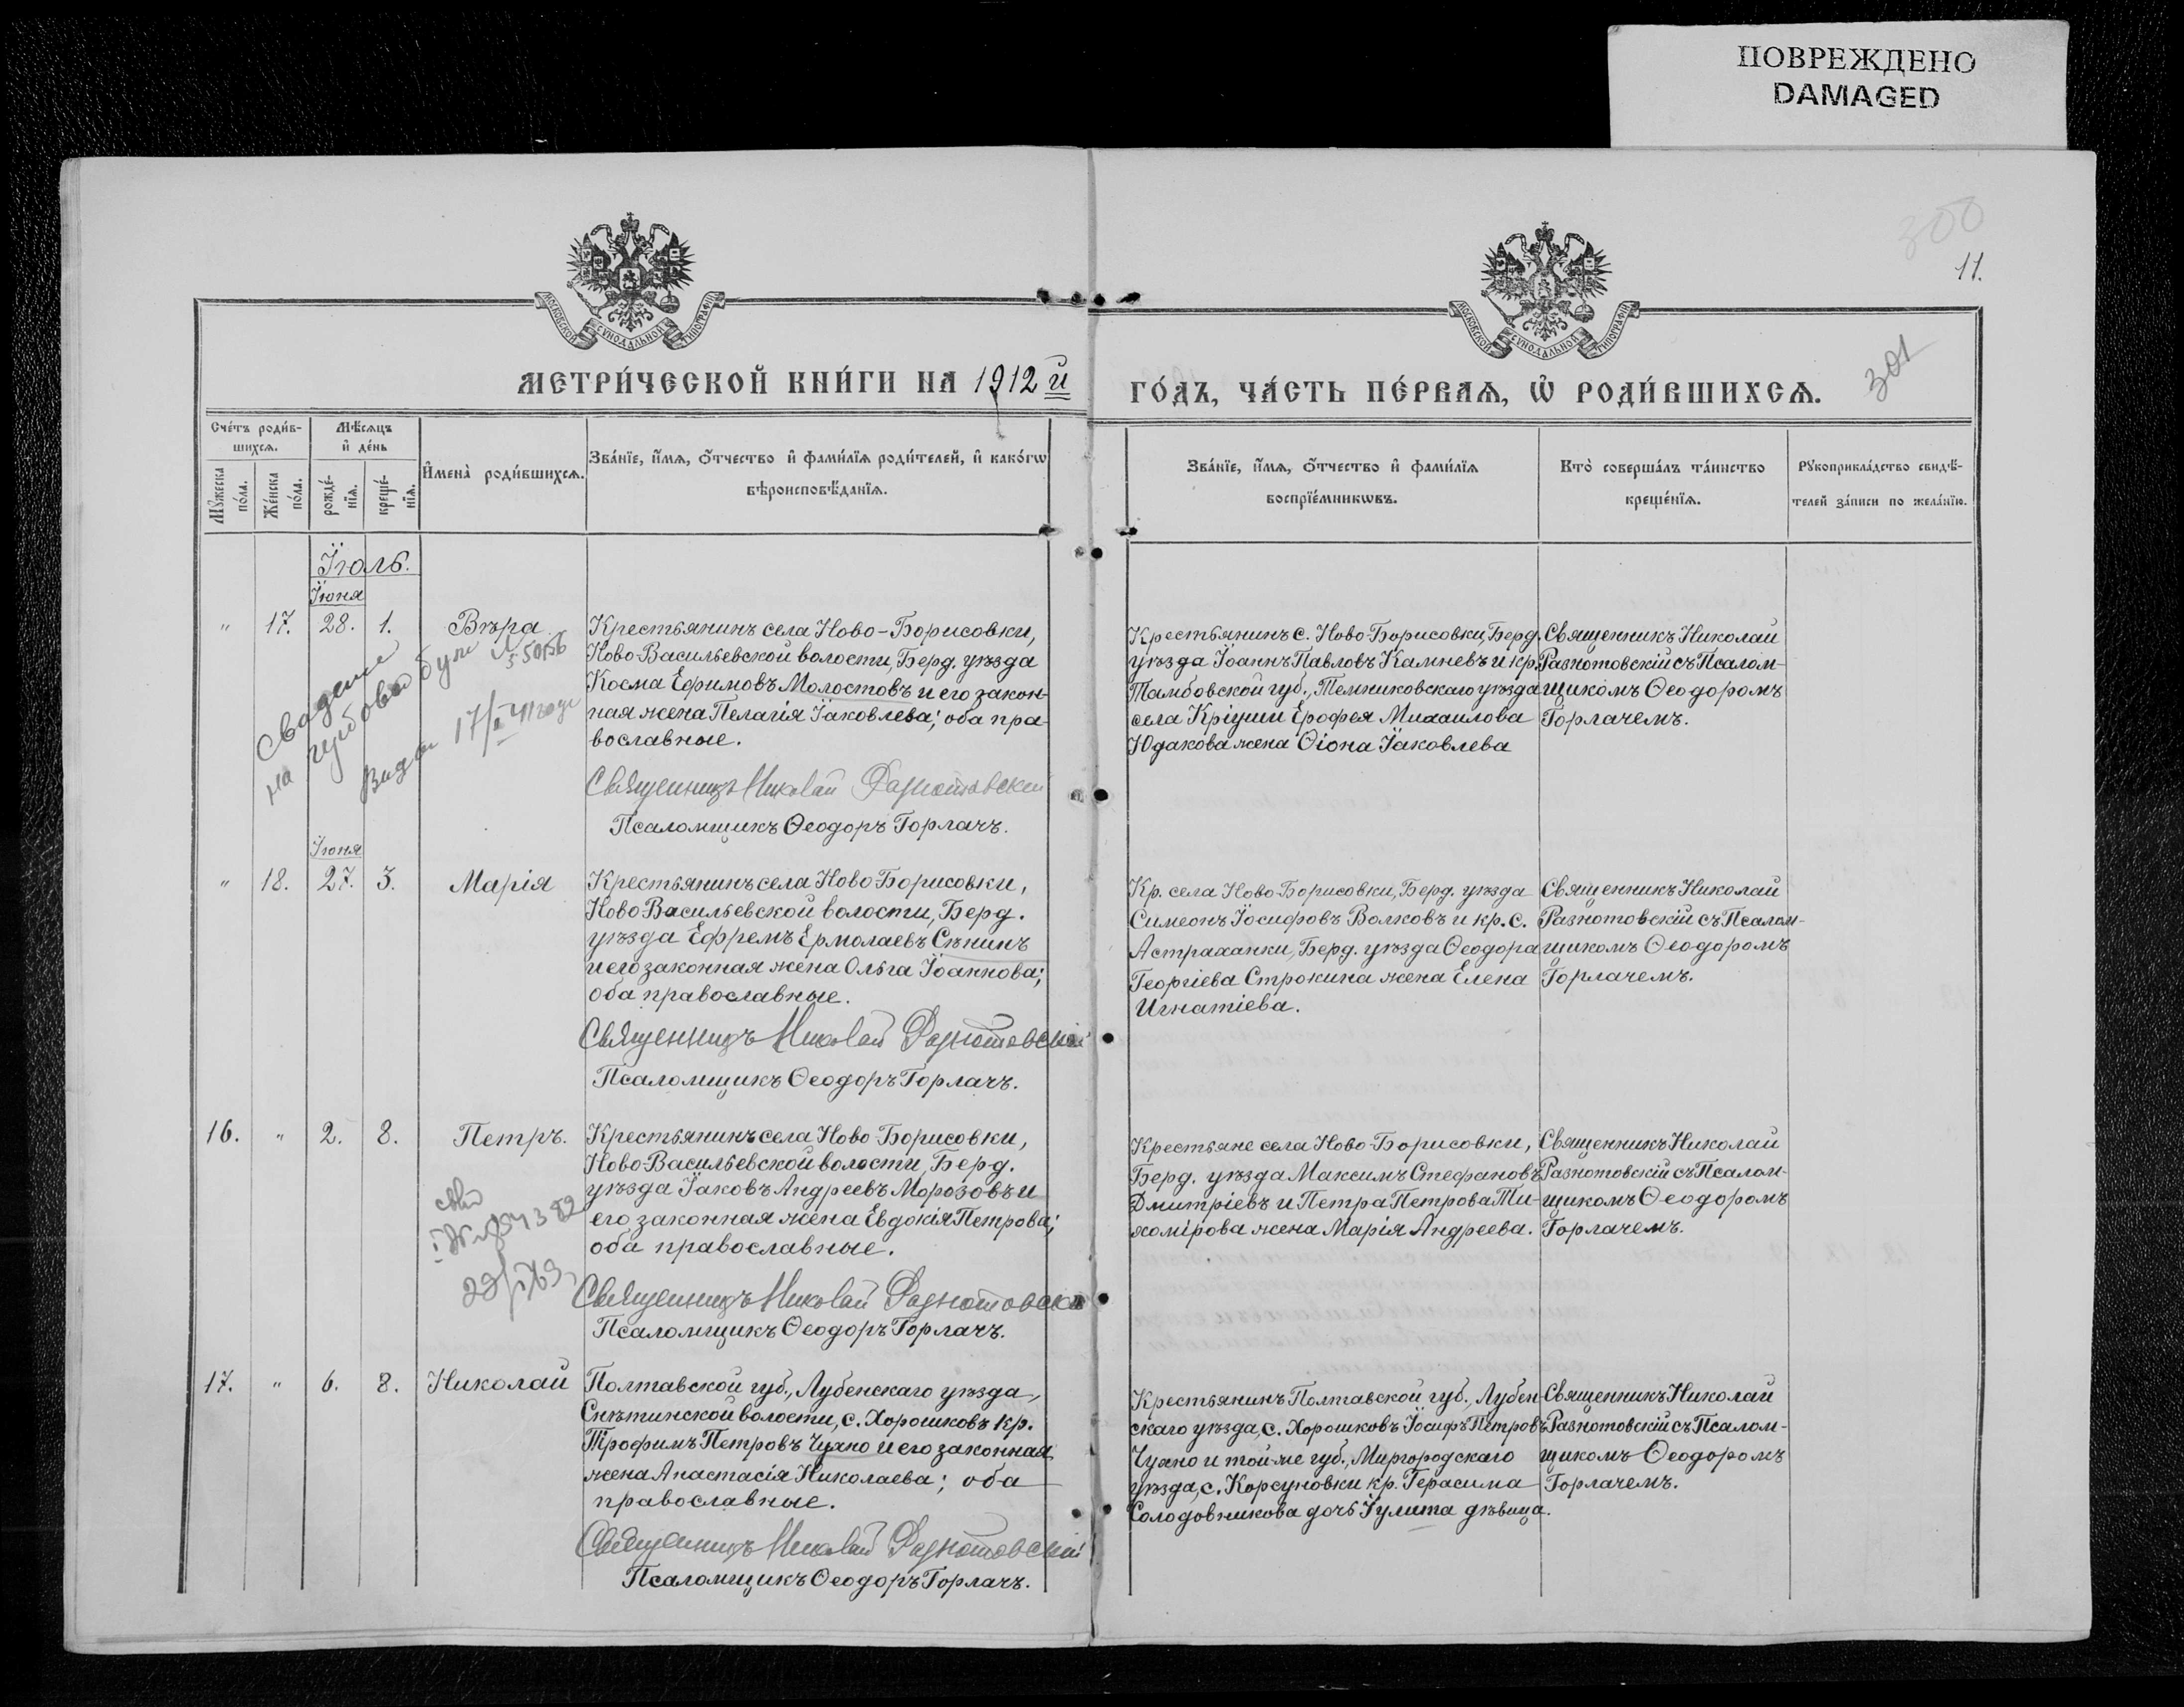 ПОВРЕЖДЕНО
DAMAGED
300
11.
301
МОСКОВСКОЙ СУНОДАЛЬНОЙ ТИПОГРАФІИ
МОСКОВСКОЙ СУНОДАЛЬНОЙ ТИПОГРАФІИ
МЕТРИ́ЧЕСКОЙ КНИ́ГИ НА 1912й
ГО́ДЪ, ЧА́СТЬ ПЕ́РВАѦ, Ѡ҆ РОДИ́ВШИХСѦ.
Сче́тъ роди́в-
шихсѧ.
Мѣ́сѧцъ
и҆ де́нь
Мꙋ́жеска
по́ла.
Же́нска
по́ла.
рожде́-
нїѧ.
креще́-
нїѧ.
И҆мена̀ роди́вшихсѧ.
Зва́нїе, и҆́мѧ, ѻ҆́тчество и҆ фами́лїѧ роди́телей, и҆ како́гѡ
вѣроисповѣ́данїѧ.
Зва́нїе, и҆́мѧ, ѻ҆́тчество и҆ фами́лїѧ
воспрїе́мникѡвъ.
Кто̀ соверша́лъ та́инство
креще́нїѧ.
Рꙋкоприкла́дство свидѣ́-
телей за́писи по жела́нїю.
Іюль.
Іюня
" 17. 28. 1. Вѣра
Крестьянинъ села Ново-Борисовки,
Ново Васильевской волости, Берд. уѣзда
Косма Ефимовъ Молостовъ и его закон-
ная жена Пелагія Іаковлева; оба пра-
вославные.
Священникъ Николай Разнотовскій
Псаломщикъ Ѳеодоръ Горлачъ.
на
Видан 17/I 41 года
Крестьянинъ с. Ново-Борисовки, Берд.
уѣзда Іоаннъ Павловъ Камневъ и кр.
Тамбовской губ., Темниковскаго уѣзда
села Кріуши Ерофея Михаилова
Юдакова жена Ѳіона Іаковлева
Священникъ Николай
Разнотовскій съ Псалом-
щикомъ Ѳеодоромъ
Горлачемъ.
Іюня
" 18. 27. 3. Марія
Крестьянинъ села Ново Борисовки,
Ново Васильевской волости, Берд.
уѣзда Ефремъ Ермолаевъ Сѣнинъ
и его законная жена Ольга Іоаннова;
оба православные.
Священникъ Николай Разнотовскій
Псаломщикъ Ѳеодоръ Горлачъ.
Кр. села Ново-Борисовки, Берд. уѣзда
Симеонъ Іосифовъ Волковъ и кр. с.
Астраханки, Берд. уѣзда Ѳеодора
Георгіева Строкина жена Елена
Игнатіева.
Священникъ Николай
Разнотовскій съ Псалом-
щикомъ Ѳеодоромъ
Горлачемъ.
16. " 2. 8. Петръ.
Крестьянинъ села Ново-Борисовки,
Ново-Васильевской волости, Берд.
уѣзда Іаковъ Андреевъ Морозовъ и
его законная жена Евдокія Петрова;
оба православные.
Священникъ Николай Разнотовскій
Псаломщикъ Ѳеодоръ Горлачъ.
Крестьяне села Ново-Борисовки,
Берд. уѣзда Максимъ Стефановъ
Дмитріевъ и Петра Петрова Ти-
хомірова жена Марія Андреева.
Священникъ Николай
Разнотовскій съ Псалом-
щикомъ Ѳеодоромъ
Горлачемъ.
17. " 6. 8. Николай
Полтавской губ., Лубенскаго уѣзда,
Снѣтинской волости, с. Хорошковъ кр.
Трофимъ Петровъ Чухно и его законная
жена Анастасія Николаева; оба
православные.
Священникъ Николай Разнотовскій
Псаломщикъ Ѳеодоръ Горлачъ.
Крестьянинъ Полтавской губ., Лубен-
скаго уѣзда, с. Хорошковъ Іосифъ Петровъ
Чухно и той-же губ., Миргородскаго
уѣзда, с. Корсуновки кр. Герасима
Солодовникова дочь Іулита дѣвица.
Священникъ Николай
Разнотовскій съ Псалом-
щикомъ Ѳеодоромъ
Горлачемъ.